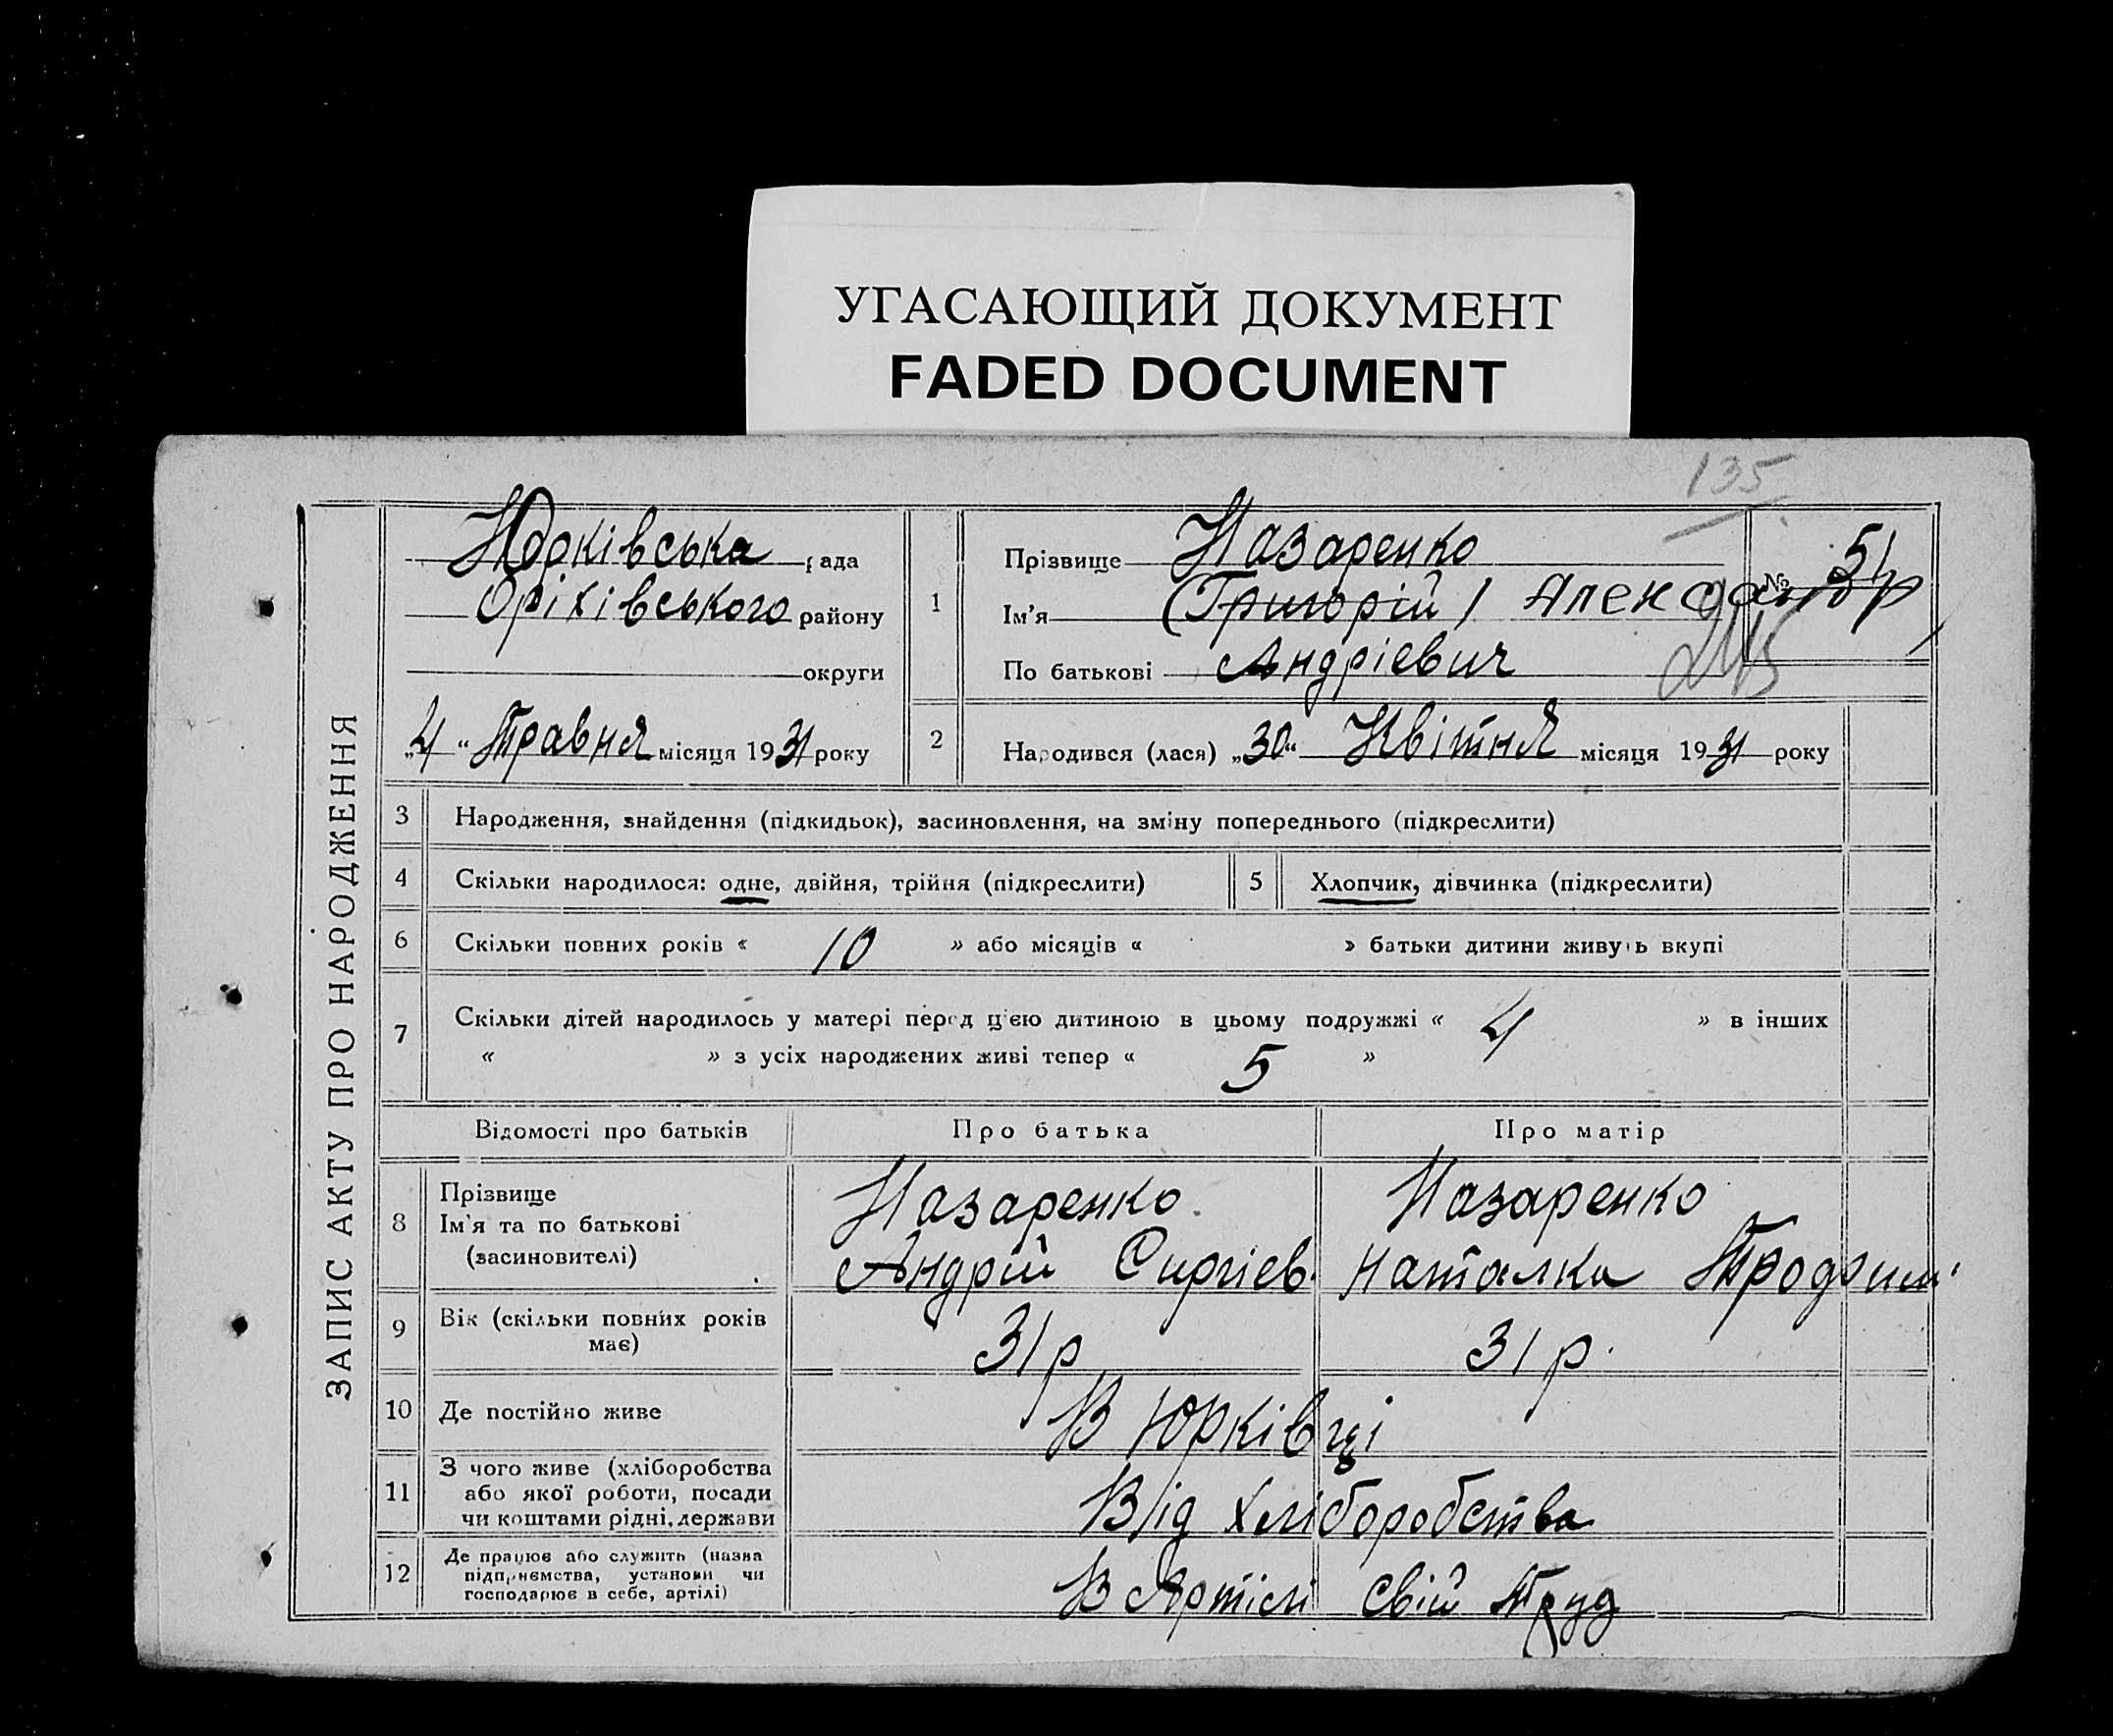 УГАСАЮЩИЙ ДОКУМЕНТ
FADED DOCUMENT
135
ЗАПИС АКТУ ПРО НАРОДЖЕННЯ
Юрківська рада
Оріхівського району
округи
„4“ Травня місяця 1931 року
1
Прізвище Назаренко
Ім'я (Григорій) Александр
По батькові Андрієвич
№ 54
2
Народився (лася) „30“ Квітня місяця 1931 року
3 Народження, знайдення (підкидьок), засиновлення, на зміну попереднього (підкреслити)
4 Скільки народилося: одне, двійня, трійня (підкреслити)
5 Хлопчик, дівчинка (підкреслити)
6 Скільки повних років « 10 » або місяців « » батьки дитини живуть вкупі
7 Скільки дітей народилось у матері перед цією дитиною в цьому подружжі « 4 » в інших
« » з усіх народжених живі тепер « 5 »
Відомості про батьків Про батька Про матір
8 Прізвище
Ім'я та по батькові
(засиновителі)
Назаренко
Андрій Сиргіев.
Назаренко
Наталка
9 Вік (скільки повних років
має)
31 р
31 р.
10 Де постійно живе
В Юрківці
11 З чого живе (хліборобства
або якої роботи, посади
чи коштами рідні, держави
Від хліборобства
12 Де працює або служить (назва
підприємства, установи чи
господарює в себе, артілі)
В Артілі Свій Труд